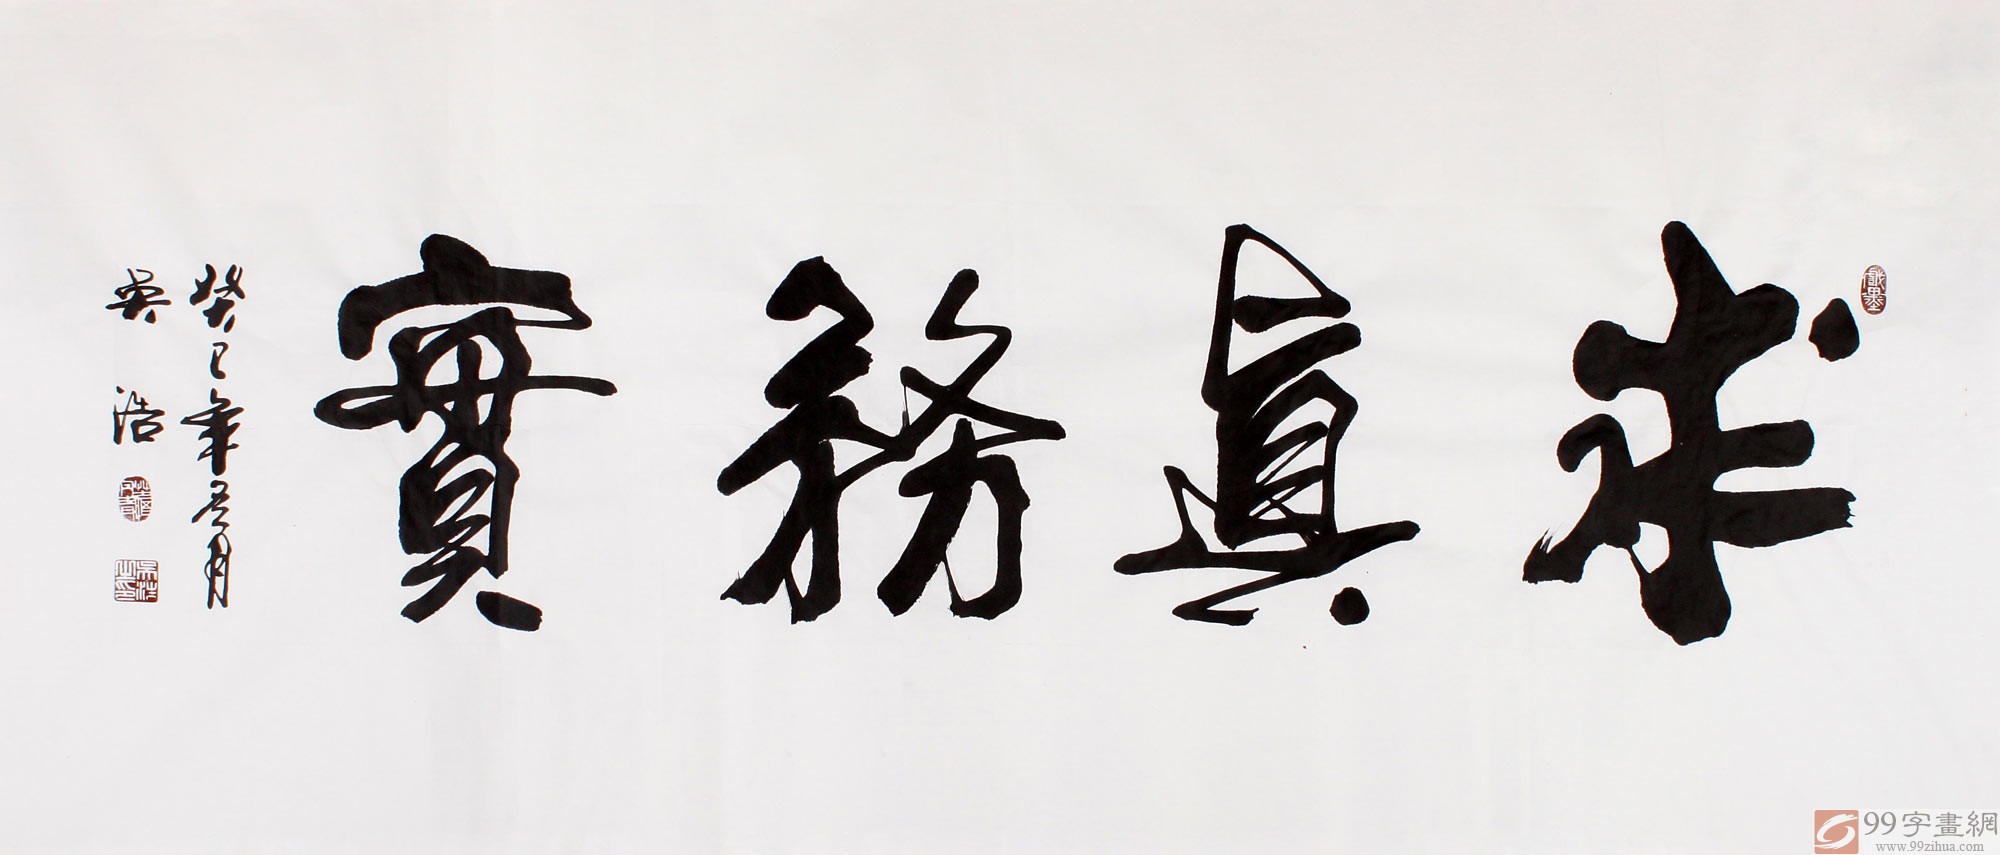 求真務實
癸巳年冬月
吳浩
99字畫網
www.99zihua.com